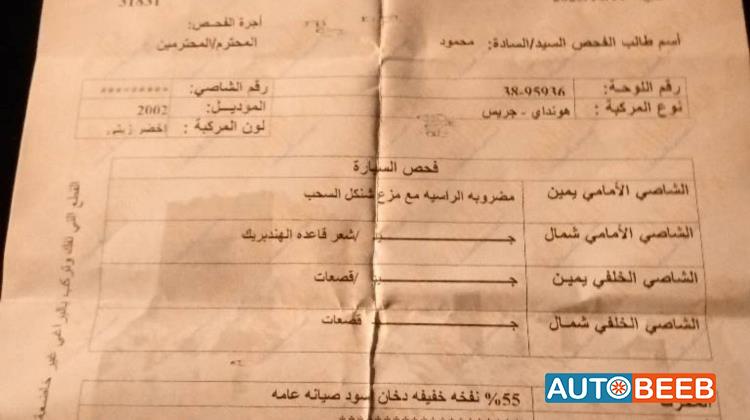 31831
أجرة الفحص:
أسم طالب الفحص السيد/السادة: محمود المحترم/المحترمين
رقم اللوحة: 38-95936 رقم الشاصي: *********
نوع المركبة : هونداي - جريس الموديل: 2002
لون المركبة : اخضر زيتي
فحص السيارة
الشاصي الأمامي يمين مضروبه الراسيه مع مزع شنكل السحب
الشاصي الأمامي شمال جيد /شعر قاعده الهندبريك
الشاصي الخلفي يمين جيد /قصعات
الشاصي الخلفي شمال جيد قصعات
55% نفخه خفيفه دخان سود صيانه عامه
القطع التي تفك وتركب بالبراغي غير خاضعة
AUTOBEEB.com